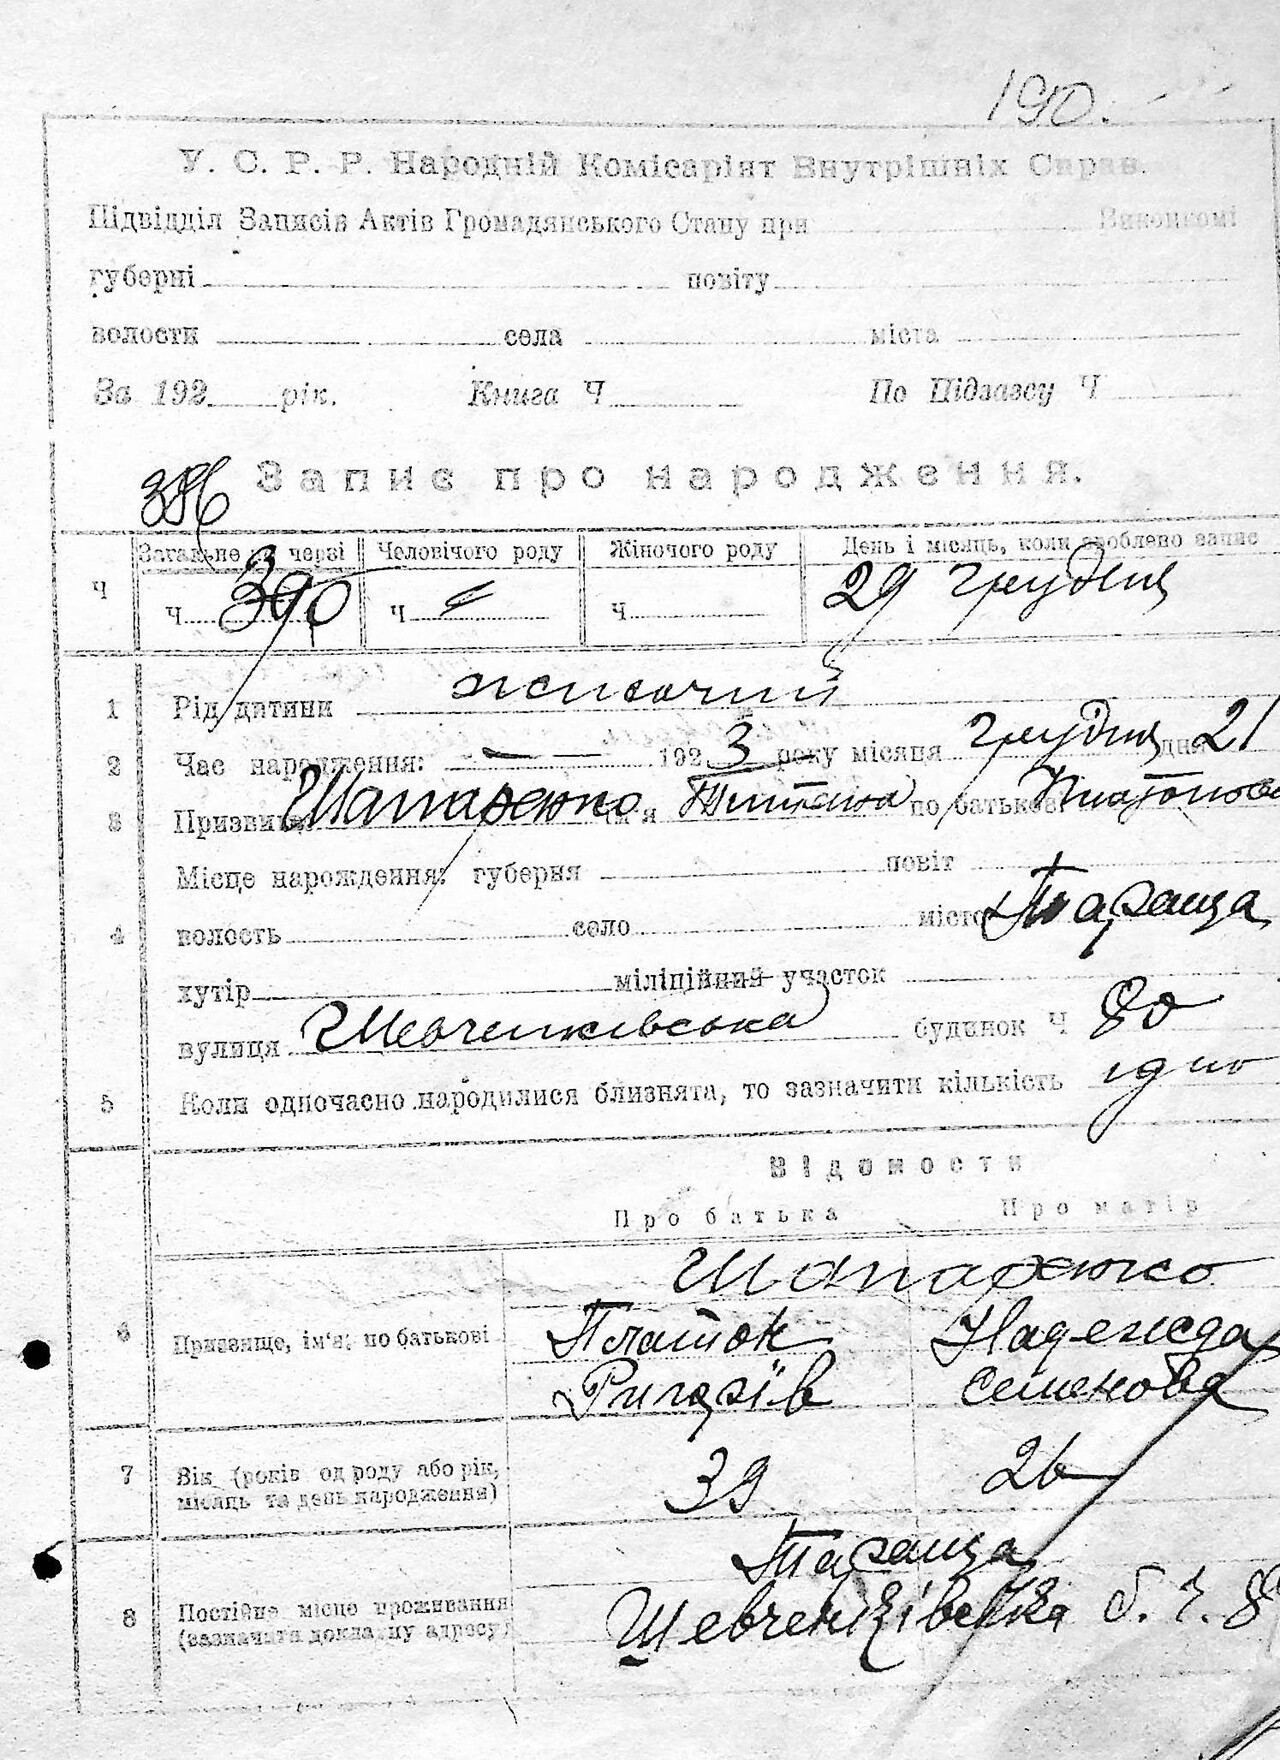 190.
У. С. Р. Р. Народній Комісаріят Внутрішніх Справ.
Підвідділ Записів Актів Громадянського Стану при Виконкомі
губерні повіту
волости села міста
За 192 рік. Книга Ч По Підзагсу Ч
386
Запис про народження.
Загальне по черзі Человічого роду Жіночого роду День і місяць, коли зроблено запис
Ч Ч 390 Ч Ч 29 грудня
1 Рід дитини жіночий
2 Час народження: 1923 року місяця грудня дня 21
3 Призвище Шапаренко ім'я Титяна по батькові Платонова
Місце народження: губерня повіт
4 волость село місто Тараща
хутір міліційний участок
вулиця Шевченківська будинок Ч 80
5 Коли одночасно народилися близнята, то зазначити кількість одно
Відомости
Про батька Про матір
Шапаренко
6 Призвище, ім'я, по батькові Платон Надежда
Григорів Семенова
7 Вік (років од роду або рік, 39 26
місяць та день народження)
Тараща
8 Постійне місце проживання Шевченківська б. ч. 80
(зазначити докладну адресу)